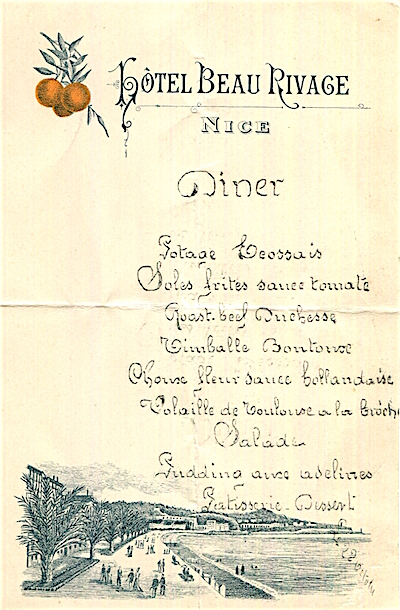 HÔTEL BEAU RIVAGE
NICE
Diner
Potage Ecossais
Soles frites sauce tomate
Roast-beef Duchesse
Timballe Bontoux
Choux fleur sauce hollandaise
Volaille de Toulouse a la broche
Salade
Pudding aux
Patisserie-Dessert